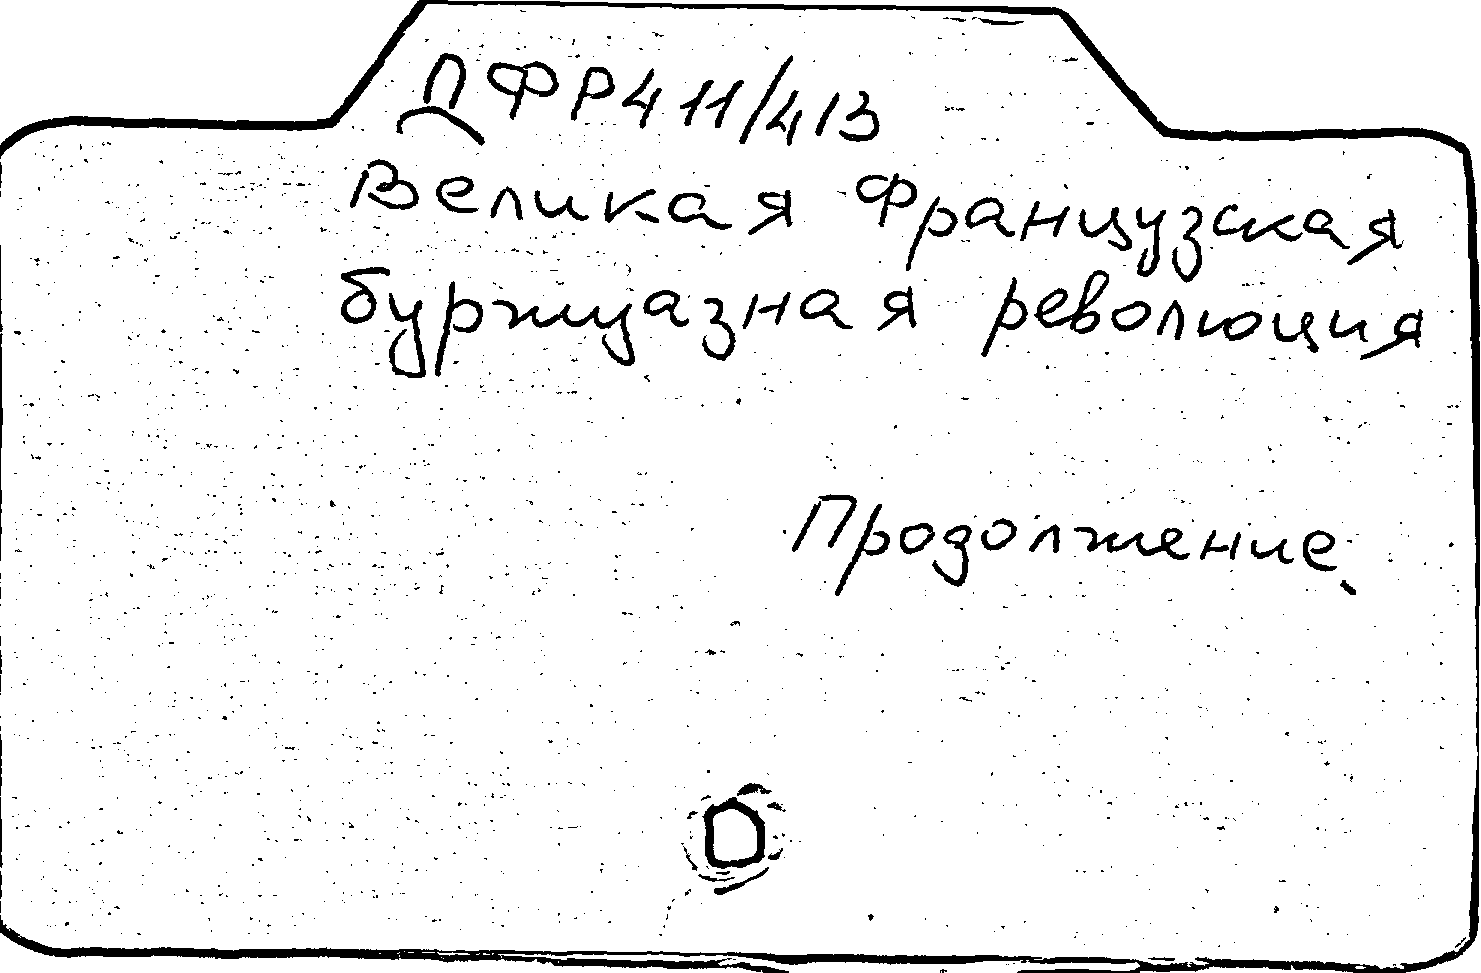 ДФР411/413
Великая Французская
буржуазная революция
Продолжение.